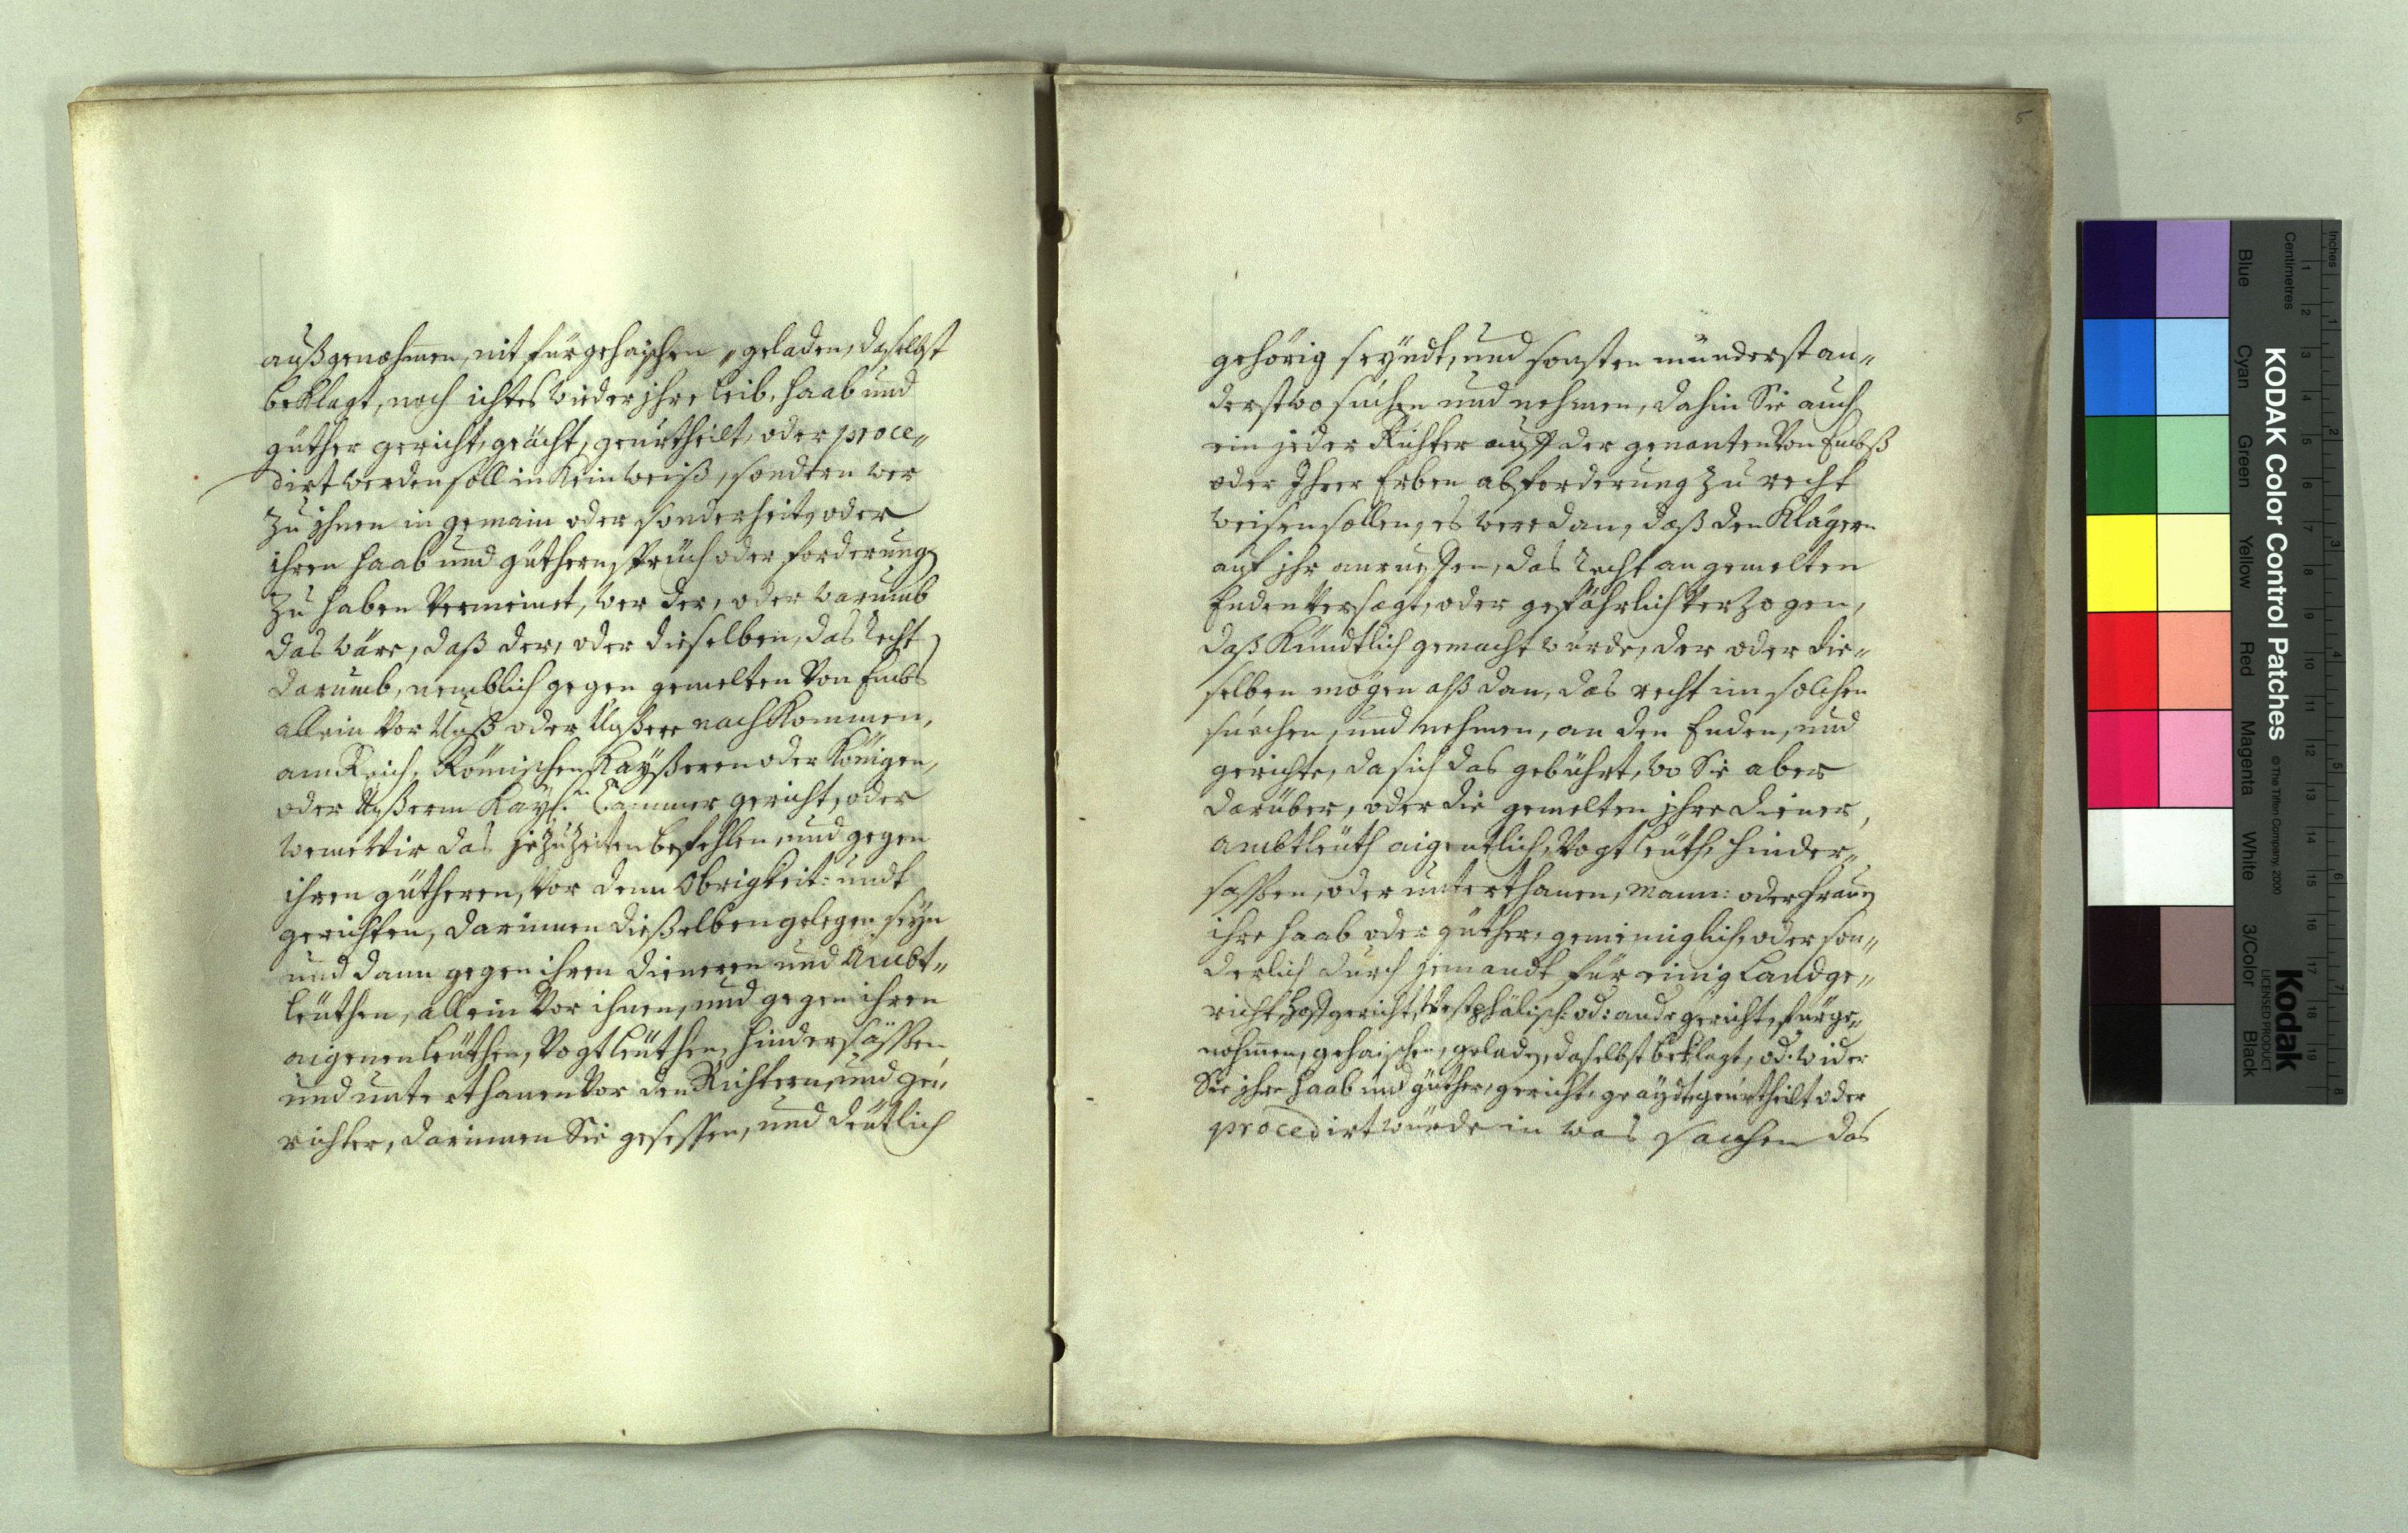 außgenohmen, nit fürgehaischen, geladen, daselbst
beklagt, noch ichtes wieder ihre leib, haab und
güther gericht, geächt, geurtheilt, oder proce„
dirt werden soll in kein weiß, sondern wer
zu ihnen in gemain oder sonderheit, oder
ihren haab und güthern, spruch oder forderung
zu haben vermeinet, wer der, oder warumb
das wäre, daß der, oder dieselben, das recht
darumb, nemblich gegen gemelten von Embs
allein vor Unß oder Unßere nachkommen,
am Reich, Römischen Kayßeren oder Königen,
oder Unßerm Kayß. Cammer gericht, oder
weme wir das je zu Zeiten befehlen, und gegen
ihren gütheren, vor denn Obrigkeit: undt
gerichten, darinnen dießelben gelegen seyn
und dann gegen ihren dieneren und Ambt„
leuthen, allein vor ihnen, und gegen ihren
aigenen leuthen, Vogtleuthen, hindersässen
und unterthanen vor den Richtern, und ge„
richter, darinnen Sie gesessen, und deutlich
5
gehörig seyndt, und sonsten münderst an„
derstwo suchen und nehmen, dahin Sie auch
ein jeder Richter auff der genanten von Embß
oder Ihrer Erben abforderung zu recht
weisen sollen, es were dan, daß den Klägern
auf ihr anrueffen, das recht an gemelten
Enden versagt, oder gefährlich verzogen,
daß kundtlich gemacht wurde, der oder die„
selben mögen alß dan, das recht im solchen
suechen, und nehmen, an den Enden, und
gerichte, da sich das gebührt, wo Sie aber
darüber, oder die gemelten ihre diener,
ambtleuth aigentlich, Vogtleuth, hinder„
sassen, oder unterthanen, Mann: oder frauen
ihre haab oder güther, gemeiniglich, oder son„
derlich durch jemandt für einig Landge„
richt, hoffgericht, Westphälisch: od: andr gericht, fürge„
nohmen, gehaischen, geladen, daselbst beklagt, od: wider
Sie ihre haab und güther, gericht, geaydt, geurtheilt oder
procedirt wurde in was sachen das
KODAK Color Control Patches
© The Tiffen Company, 2000
Kodak
LICENSED PRODUCT
Inches
Centimetres
Blue Cyan Green Yellow Red Magenta White 3/Color Black